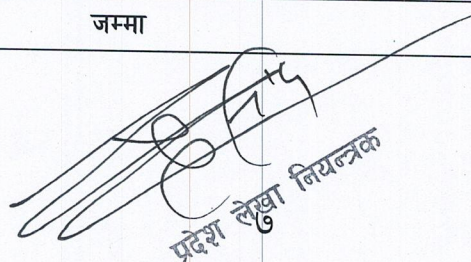 जम्मा
प्रदेश लेखा नियन्त्रक
७